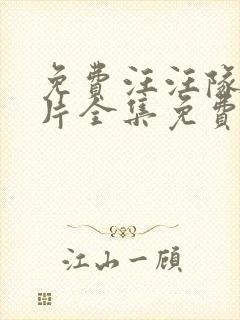 免費汪汪隊
片全集免費
江山一顧